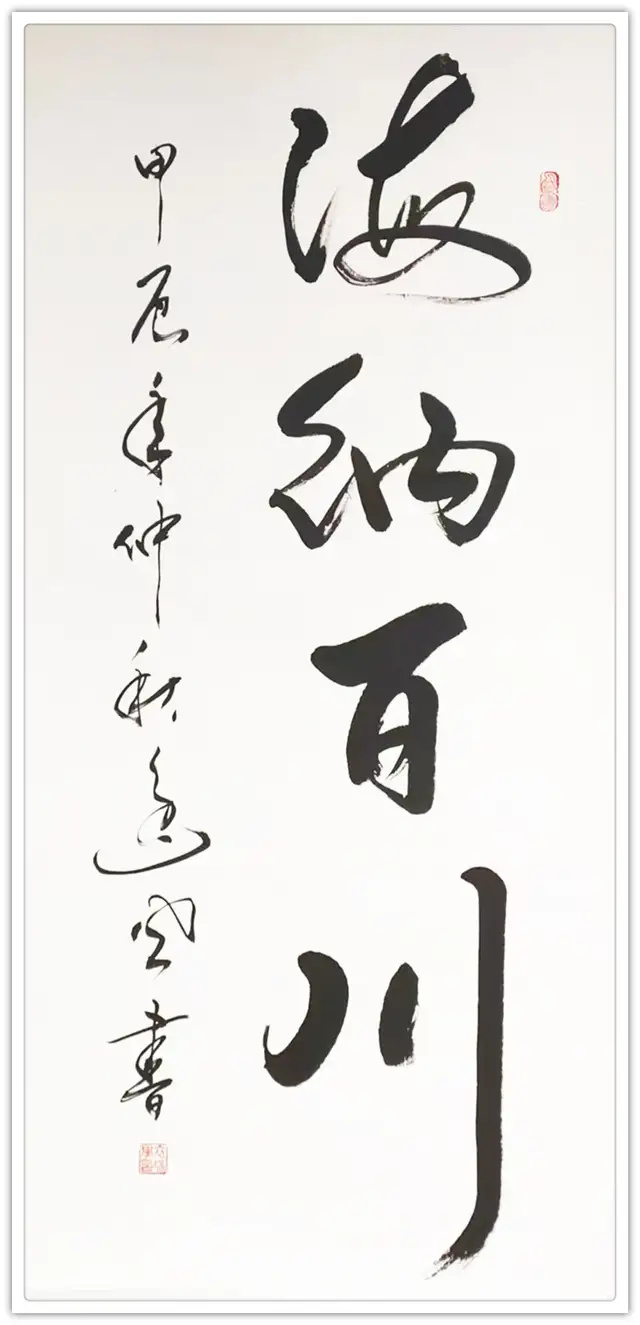 海纳百川
甲辰年仲秋 书